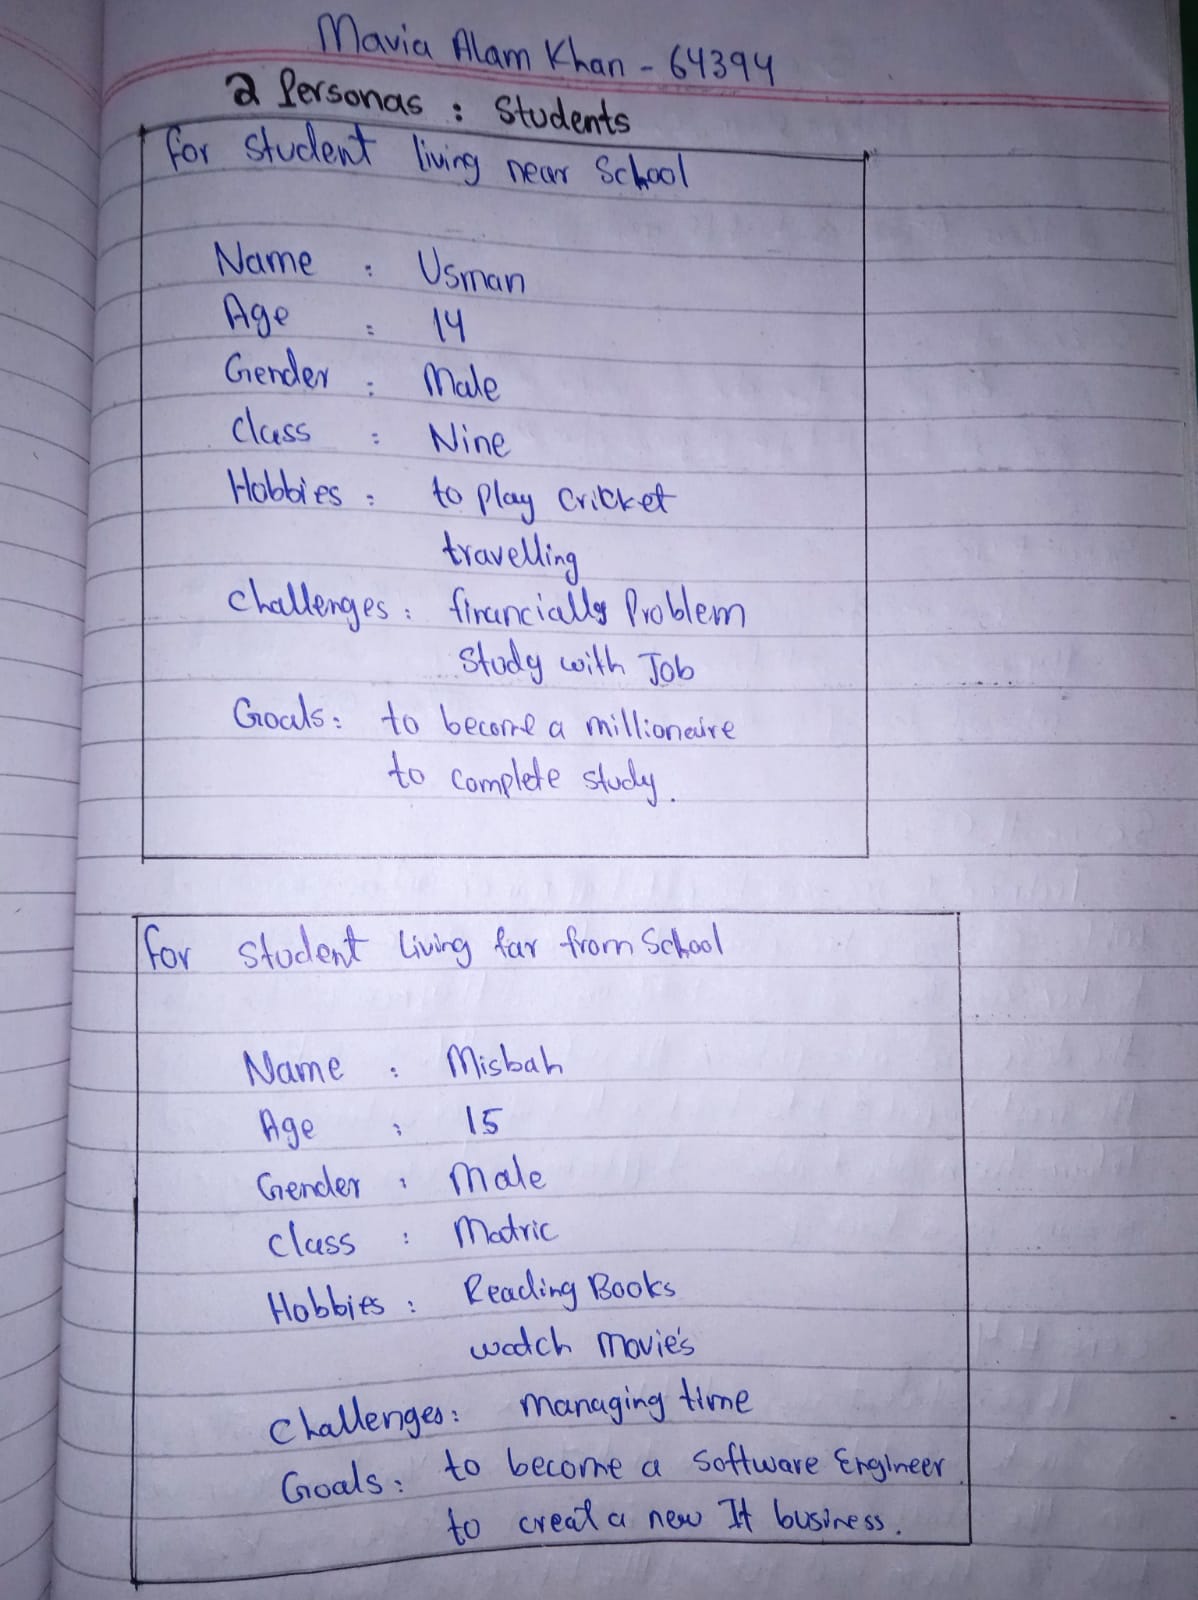 Mavia Alam Khan - 64394
2 Personas : Students
for student living near School
Name : Usman
Age : 14
Gender : Male
Class : Nine
Hobbies : to play Cricket
travelling
Challenges : financially Problem
Study with Job
Goals : to become a millionaire
to complete study.
for student living far from School
Name : Misbah
Age : 15
Gender : Male
Class : Matric
Hobbies : Reading Books
watch Movie's
Challenges : Managing time
Goals : to become a Software Engineer
to creat a new It business.